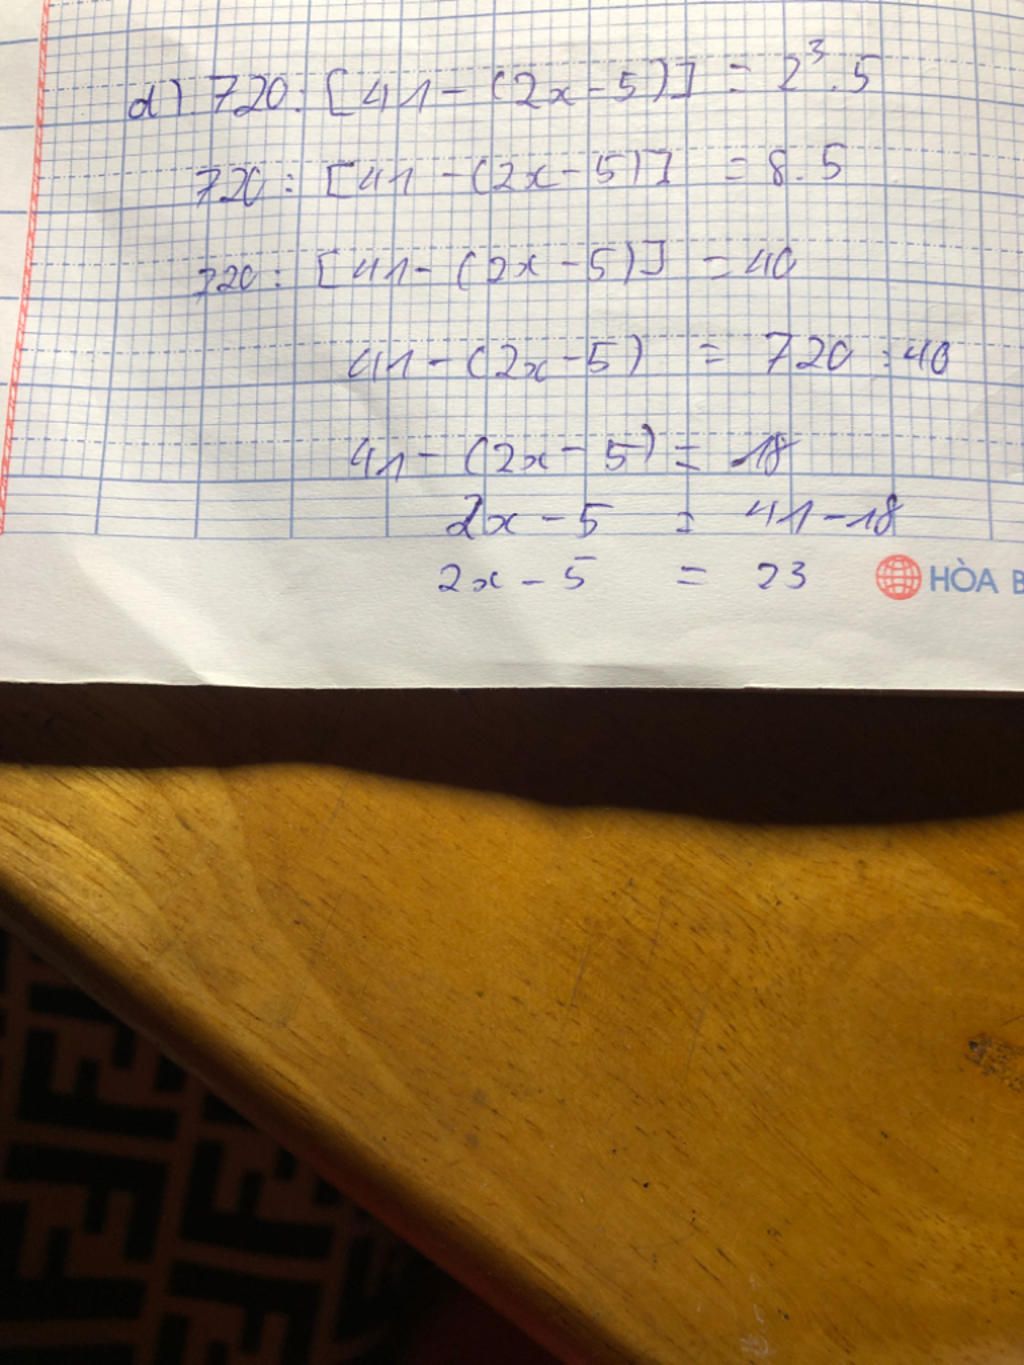 d) 720 : [41 - (2x - 5)] = 2³.5
720 : [41 - (2x - 5)] = 8.5
720 : [41 - (2x - 5)] = 40
41 - (2x - 5) = 720 : 40
41 - (2x - 5) = 18
2x - 5 = 41 - 18
2x - 5 = 23
HÒA B